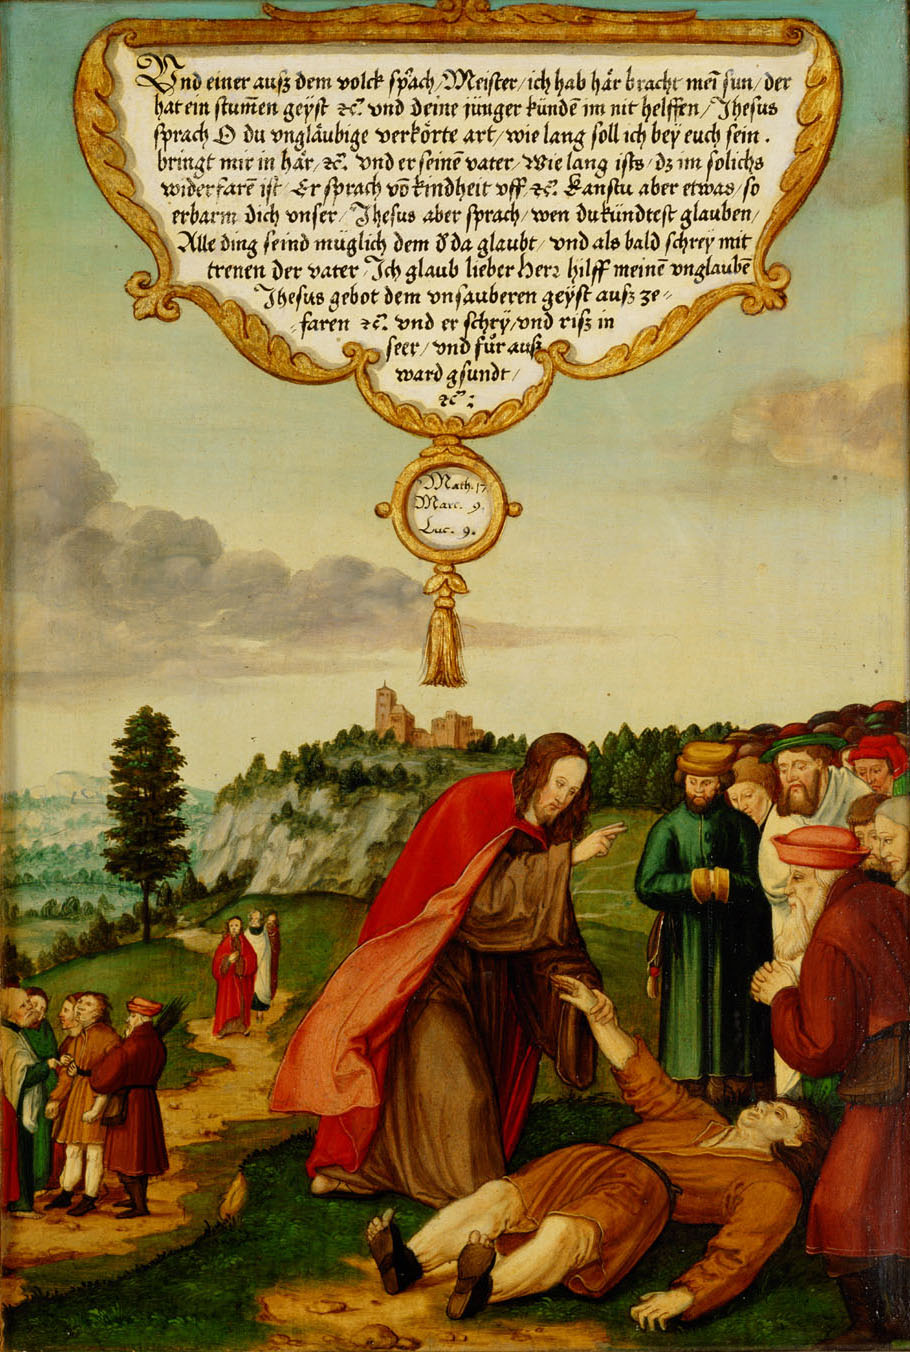 Vnd einer auſz dem volck sprach/Meister/ich hab här bracht meī sun/der
hat ein stum̄en geyſt ꝛc̄. vnd deine jünger kündē im nit helffen/Jhesus
sprach O du vngläubige verkörte art/wie lang soll ich bey euch sein.
bringt mir in här/ꝛc̄. vnd er seinē vater/Wie lang ists/dz im solichs
widerfarē ist/Er sprach vō kindheit vff ꝛc̄. Kanstu aber etwas/so
erbarm dich vnser/Jhesus aber sprach/wen du kündtest glauben/
Alle ding seind müglich dem d' da glaubt/vnd als bald schrey mit
trenen der vater/Jch glaub lieber Herꝛ hilff meinē vnglaubē/
Jhesus gebot dem vnsauberen geyſt auſz ze-
-faren ꝛc̄. vnd er schrÿ/vnd riſz in
seer/vnd für auſz
ward gsundt/
ꝛc̄:
Math. 17
Marc. 9.
Luc. 9.